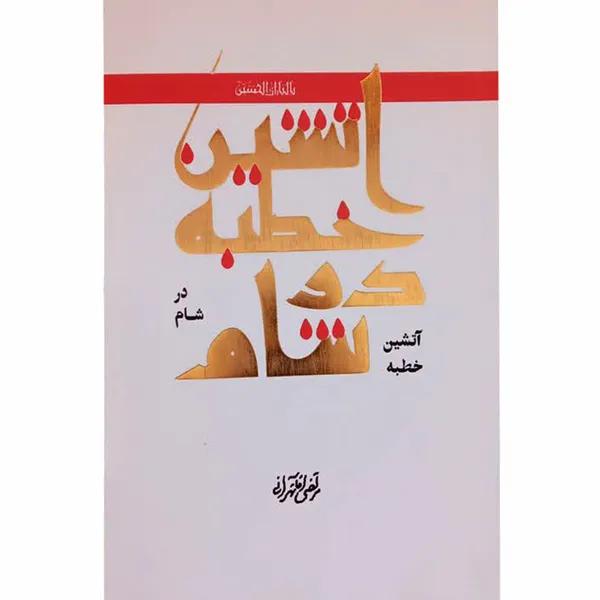 یا لثارات الحسین
آتشین
خطبه
در
شام
آتشین
خطبه
در
شام
مرتضی آقاتهرانی